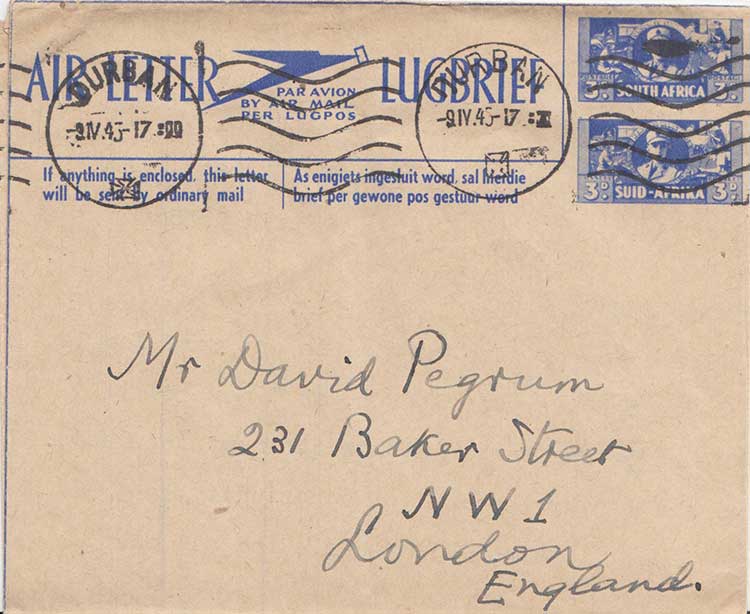 AIR LETTER
PAR AVION
BY AIR MAIL
PER LUGPOS
LUGBRIEF
DURBAN
-9IV.45-17
DURBAN
-9IV.45-17
3D SOUTH AFRICA 3D
3D SUID-AFRIKA 3D
If anything is enclosed, this letter
will be sent by ordinary mail
As enigiets ingesluit word, sal hierdie
brief per gewone pos gestuur word
Mr David Pegrum
231 Baker Street
NW1
London
England.